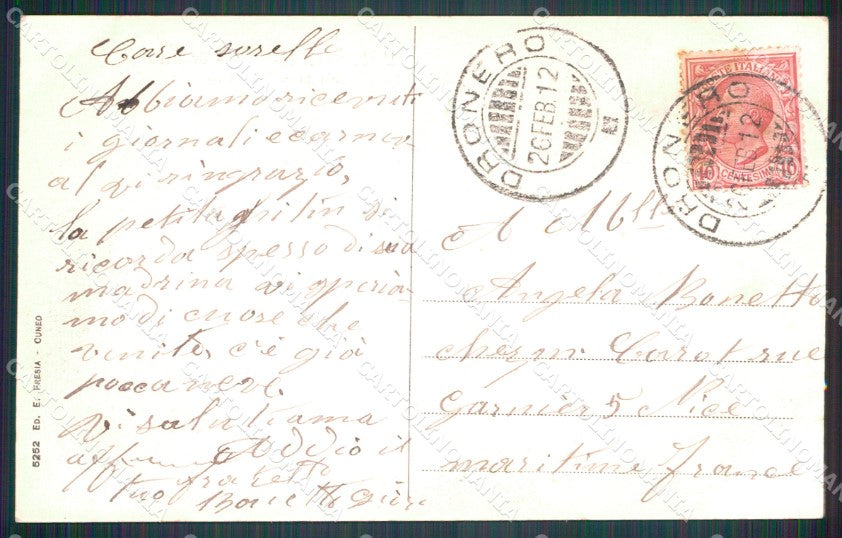 Care sorelle
Abbiamo ricevuti
i giornali e carnev
al vi ringrazio,
la petita di
ricorda spesso di sua
madrina vi speria
mo di cuore che
venite, c'è già
pocca neve.
Vi salutiamo
Addio il
tuo fratello
Bonetto
5252 ED. E. FRESIA - CUNEO
DRONERO
20 FEB. 12
POSTE ITALIANE
10 CENTESIMI 10
DRONERO
FEB. 12
A Mlle
Angela Bonetto
chez m. Carot rue
Garnier 5 Nice
maritime france
CARTOLINOMANIA